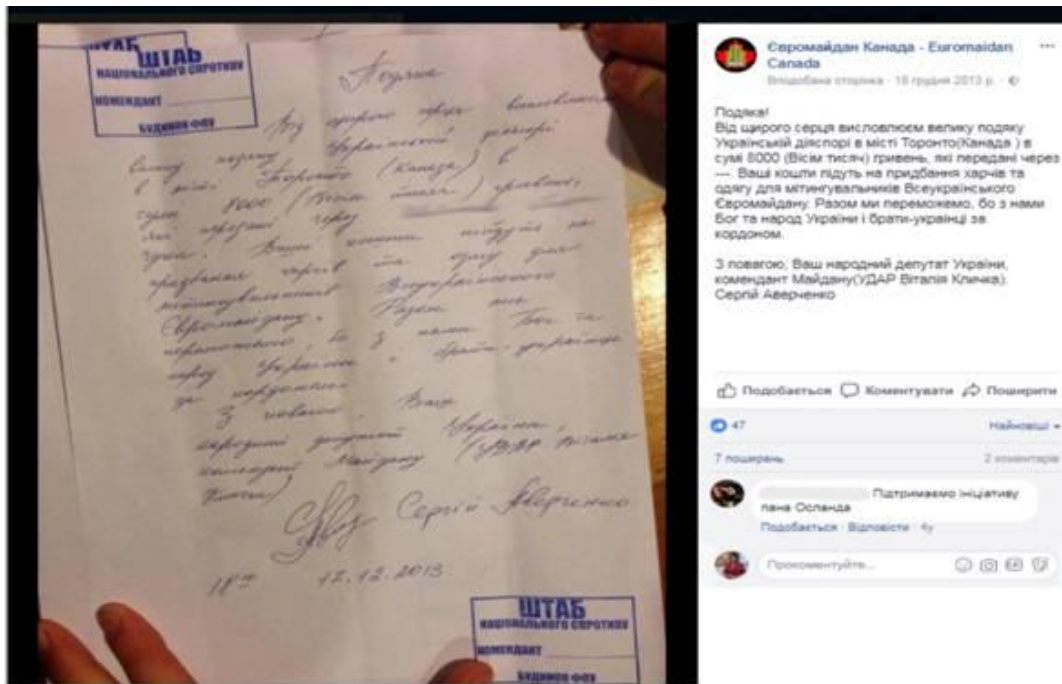 ШТАБ
ШТАБ
НАЦІОНАЛЬНОГО СПРОТИВУ
КОМЕНДАНТ
БУДИНОК ФПУ
Подяка
Від щирого серця висловлюєм
велику подяку Українській діяспорі
в місті Торонто (Канада) в
сумі 8000 (Вісім тисяч) гривень,
які передані через
Ваші кошти підуть на
придбання харчів та одягу для
мітингувальників Всеукраїнського
Євромайдану. Разом ми
переможемо, бо з нами Бог та
народ України і брати-українці
за кордоном.
З повагою, Ваш
народний депутат України,
комендант Майдану (УДАР Віталія
Кличка)
Сергій Аверченко
17.12.2013
ШТАБ
НАЦІОНАЛЬНОГО СПРОТИВУ
КОМЕНДАНТ
БУДИНОК ФПУ
Євромайдан Канада - Euromaidan
Canada
Вподобана сторінка · 18 грудня 2013 р. ·
Подяка!
Від щирого серця висловлюєм велику подяку
Українській діяспорі в місті Торонто(Канада ) в
сумі 8000 (Вісім тисяч) гривень, які передані через
---. Ваші кошти підуть на придбання харчів та
одягу для мітингувальників Всеукраїнського
Євромайдану. Разом ми переможемо, бо з нами
Бог та народ України і брати-українці за
кордоном.
З повагою, Ваш народний депутат України,
комендант Майдану(УДАР Віталія Кличка).
Сергій Аверченко
Подобається Коментувати Поширити
47 Найновіші
7 поширень 2 коментарів
Підтримаємо ініціативу
пана Осланда
Подобається · Відповісти · 4у
Прокоментуйте...